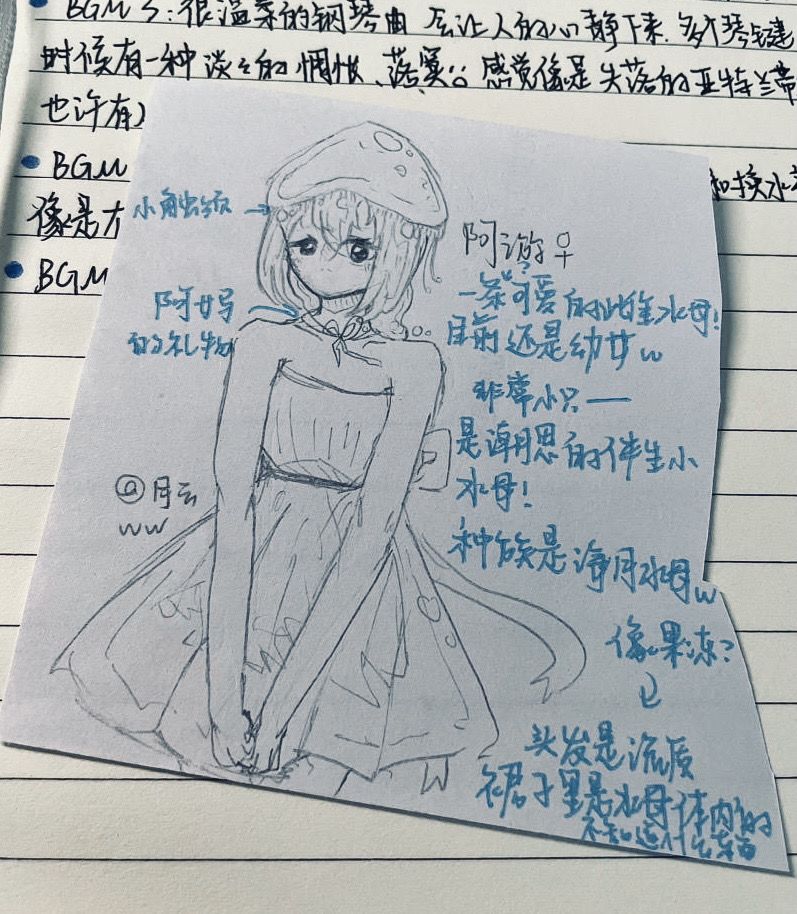 BGM 3:很温柔的钢琴曲 会让人的心静下来.
时候有一种淡淡的惆怅、落寞。感觉像是失落的亚特兰蒂
也许有)
BGM
和换水
像是
BGM
小触须→
阿母
的礼物
@月云
ww
阿游♀
一条可爱的雌性水母!
目前还是幼女w
非常小只一
是潮思的伴生小
水母!
种族是海月水母w
像果冻?
头发是流质
裙子里是水母体内的
不知道什么东西